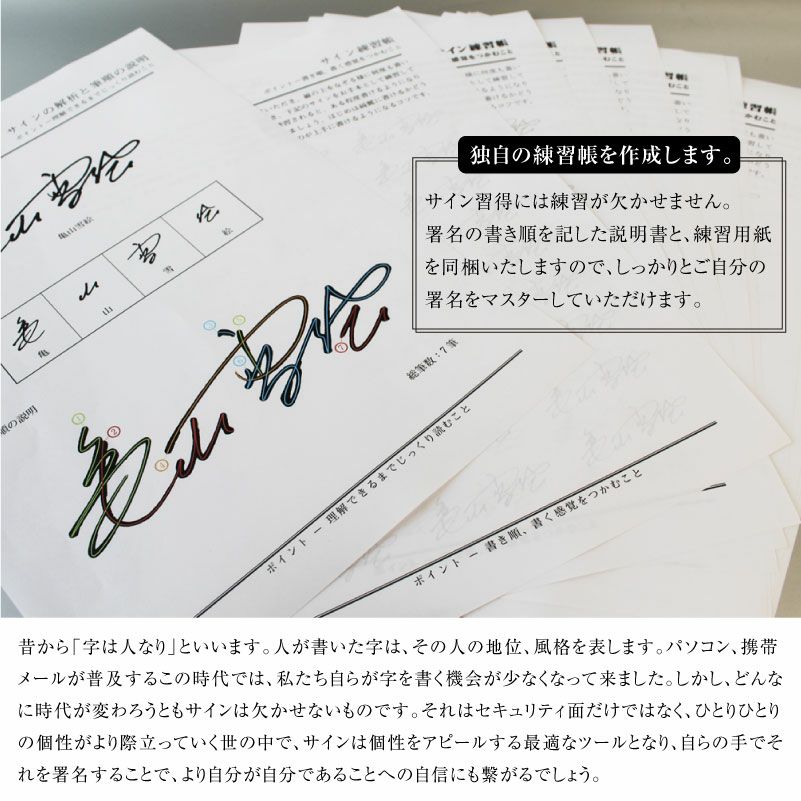 サインの解析と筆順の説明
ポイント ー 理解できるまでじっくり読むこと
亀山雪絵
亀
山
雪
絵
順の説明
①
②
③
④
⑤
⑥
⑦
総筆数：7 筆
ポイント ー 理解できるまでじっくり読むこと
サイン練習帳
ポイント ー 書き順、書く感覚をつかむこと
ポイント ー 書き順、書く感覚をつかむこと
イン練習帳
感覚をつかむこと
練習帳
むこと
独自の練習帳を作成します。
サイン習得には練習が欠かせません。
署名の書き順を記した説明書と、練習用紙
を同梱いたしますので、しっかりとご自分の
署名をマスターしていただけます。
昔から「字は人なり」といいます。人が書いた字は、その人の地位、風格を表します。パソコン、携帯
メールが普及するこの時代では、私たち自らが字を書く機会が少なくなって来ました。しかし、どんな
に時代が変わろうともサインは欠かせないものです。それはセキュリティ面だけではなく、ひとりひとり
の個性がより際立っていく世の中で、サインは個性をアピールする最適なツールとなり、自らの手でそ
れを署名することで、より自分が自分であることへの自信にも繋がるでしょう。